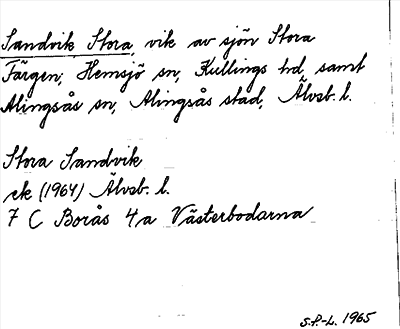 Sandvik Stora, vik av sjön Stora
Färgen, Hemsjö sn, Kullings hd, samt
Alingsås sn, Alingsås stad, Älvsb. l.
Stora Sandvik
ek (1964) Älvsb. l.
7 C Borås 4a Västerbodarna
S.P.-L. 1965